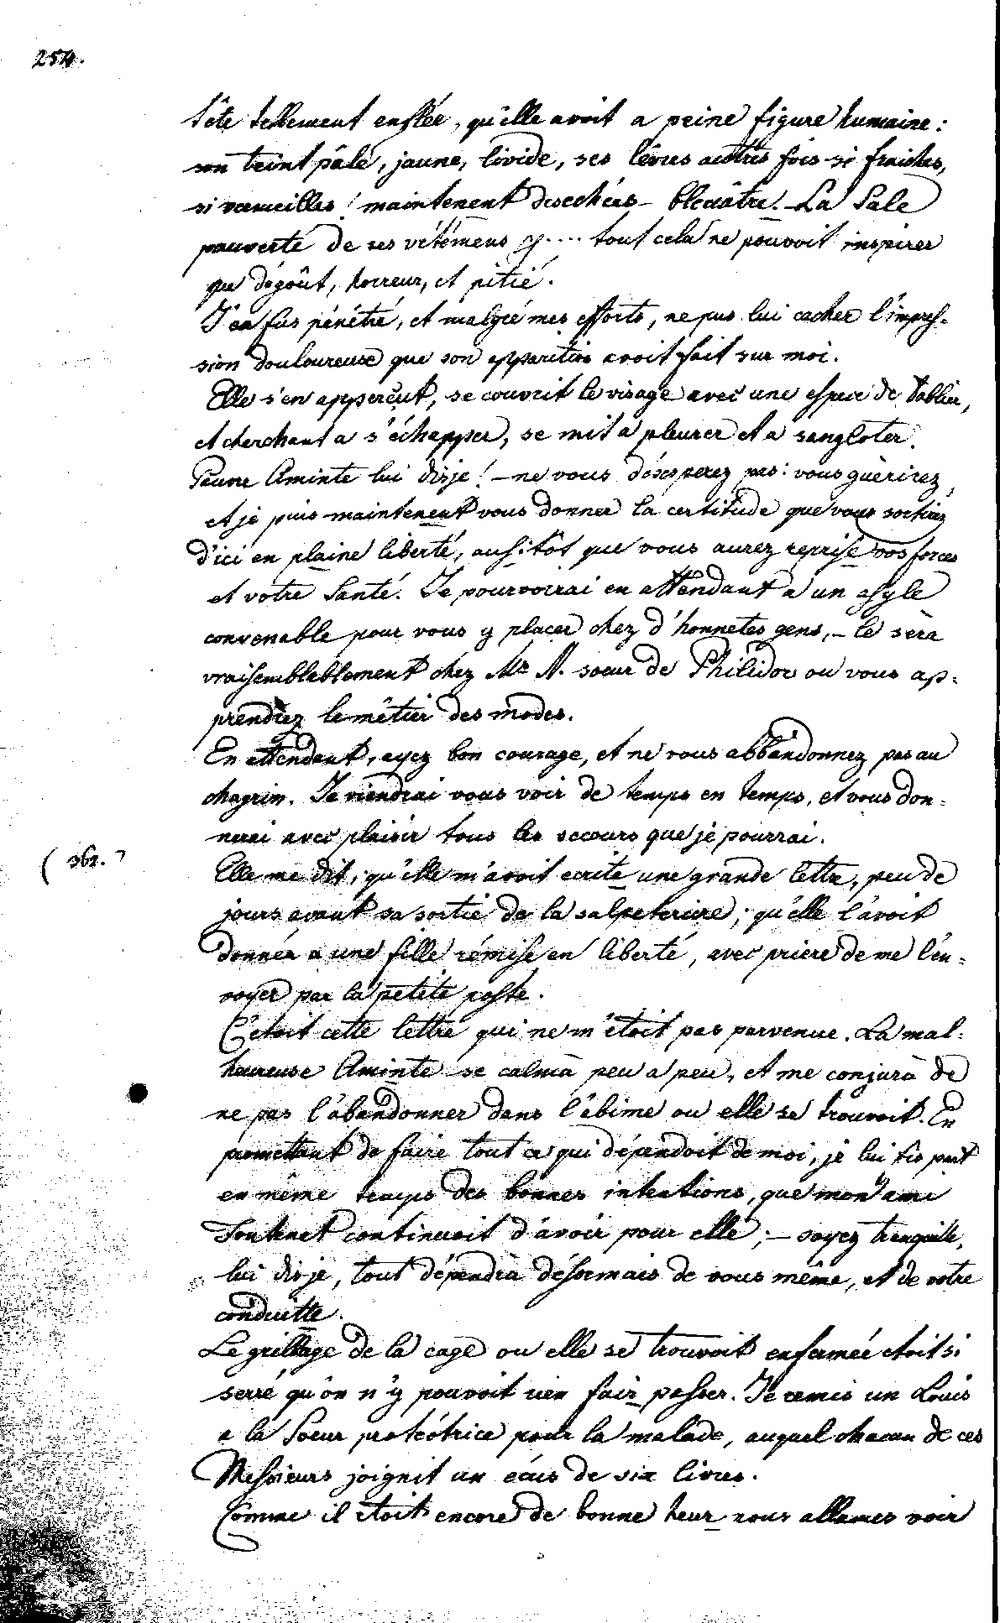 254.
tête tellement enflée, qu'elle avoit a peine figure humaine:
son teint pâle, jaune, livide, ses lévres autres fois si fraiches,
si vermeilles! maintenent desechées - bleuâtre. - La Sale
pauverté de ses vétémens y.... tout cela ne pouvoit inspirer
que dégoût, horreur, et pitié.
J'en fus pénétré, et malgré mes efforts, ne pus lui cacher l'impres-
sion douloureuse que son apparition avoit fait sur moi.
Elle s'en apperçut, se couvrit le visage avec une espece de tablier,
et cherchant a s'échapper, se mit a pleurer et a sangloter.
Pauvre Aminte lui disje! - ne vous désesperez pas: vous guérirez,
et je puis maintenent vous donner la certitude que vous sortirez
d'ici en plaine liberté, ausitôt que vous aurez reprise vos forces
et votre Santé. Je pourvoirai en attendant a un asyle
convenable pour vous y placer chez d'honnetes gens, - le sera
vraisemblablement chez Me N. soeur de Philidor ou vous ap-
prendrez le métier des modes.
En attendant, ayez bon courage, et ne vous abbandonnez pas au
chagrin. Je viendrai vous voir de temps en temps, et vous don-
nerai avec plaisir tous les secours que je pourrai.
(362.)
Elle me dit, qu'elle m'avoit ecrite une grande lettre, peu de
jours avant sa sortie de la salpeteriere; qu'elle l'avoit
donnée a une fille rémise en liberté, avec priere de me l'en-
voyer par la petite poste.
C'étoit cette lettre qui ne m'étoit pas parvenue. La mal-
heureuse Aminte se calma peu a peu, et me conjura de
ne pas l'abandonner dans l'abime ou elle se trouvoit. En
promettant de faire tout ce qui dépendoit de moi, je lui fis part
en même temps des bonnes intentions, que mon ami
Fontenet continuoit d'avoir pour elle; - soyez tranquille,
lui disje, tout dépendra désormais de vous même, et de votre
conduitte.
Le grillage de la cage ou elle se trouvoit enfermée etoit si
serré qu'on n'y pouvoit rien fair passer. Je remis un Louis
a la Soeur protéctrice pour la malade, auquel chacun de ces
Messieurs joignit un ecus de six livres.
Comme il etoit encore de bonne heur nous allames voir